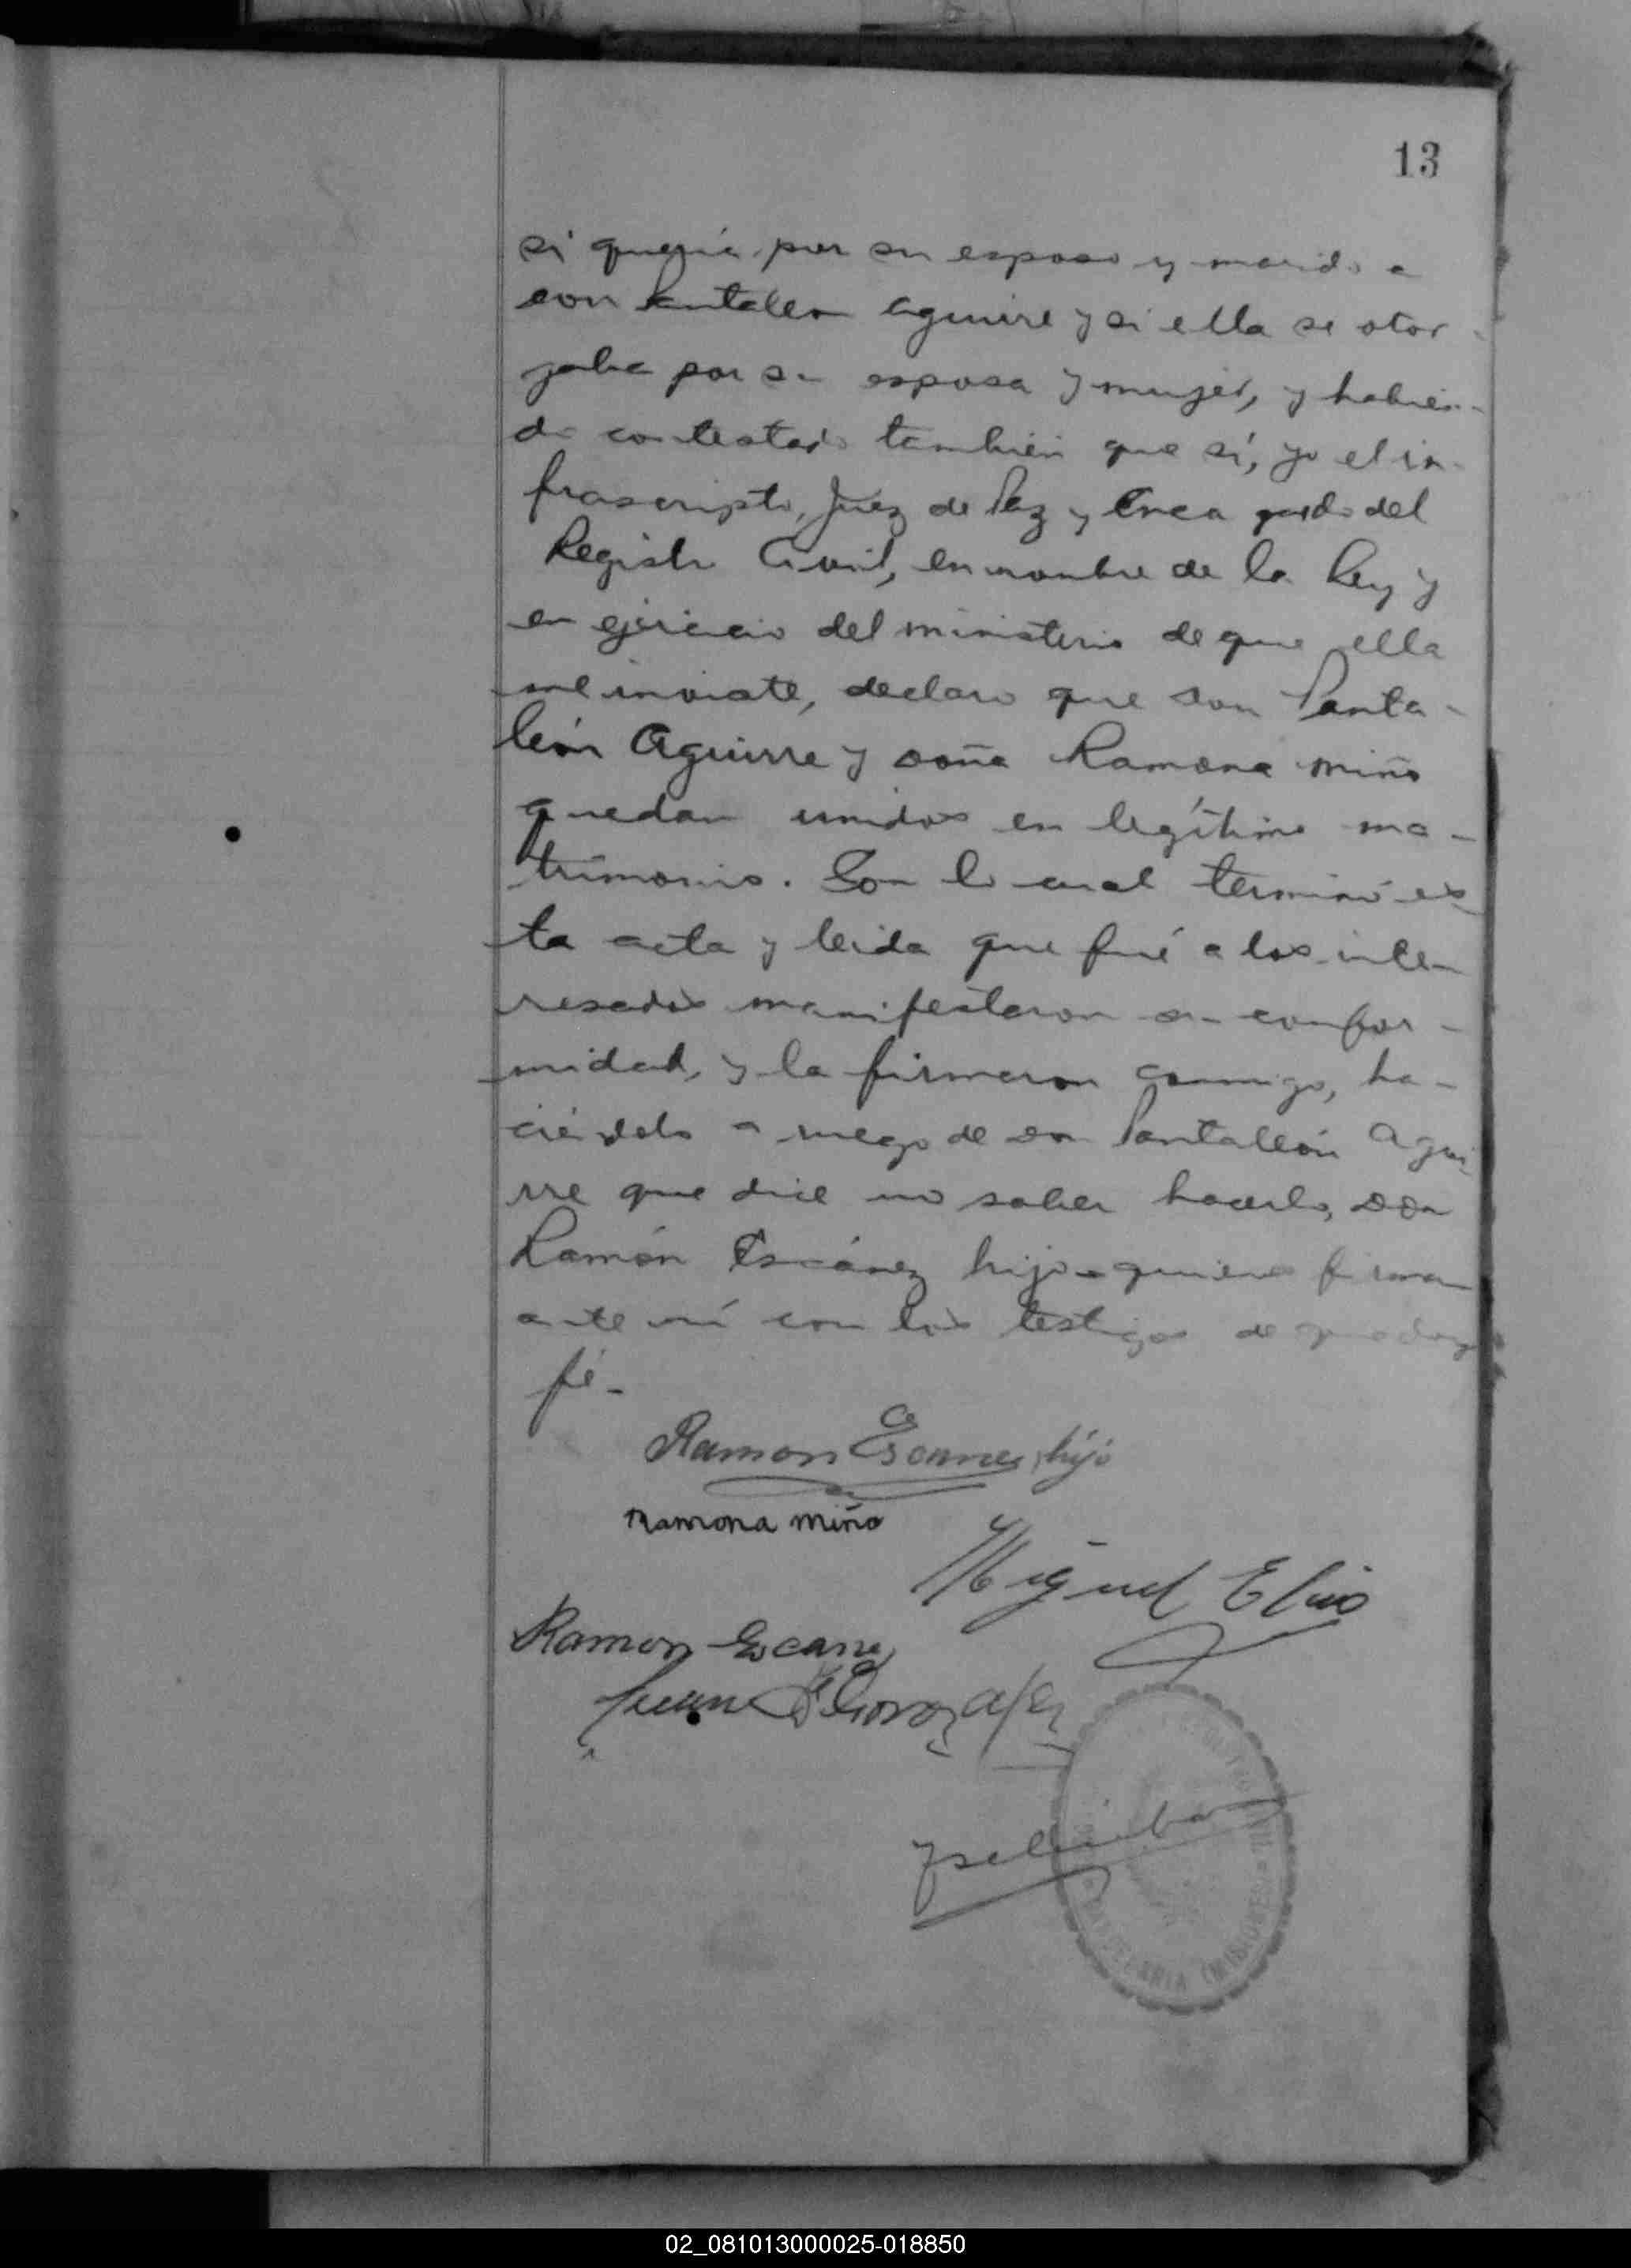 13
si quería por su esposo y marido a
don Pantaleon Aguirre y si ella se otor-
gaba por su esposa y mujer, y habien-
do contestado también que sí, yo el in-
frascripto, Juez de Paz y Encargado del
Registro Civil, en nombre de la Ley y
en ejercicio del ministerio de que ella
me inviste, declaro que don Panta-
león Aguirre y doña Ramona Miño
quedan unidos en legítimo ma-
trimonio. Con lo cual terminó es-
ta acta y leida que fué a los inte-
resados manifestaron su confor-
midad, y la firmaron conmigo, ha-
ciéndolo a ruego de don Pantaleón Agui-
rre que dice no saber hacerlo, don
Ramón Escánez hijo quienes firman
ante mí con los testigos de que doy
fé-
Ramon Escanes, hijo
Ramona Miño
Miguel Elias
Ramon Escane
Juan Gonzalez
CANDELARIA (MISIONES)
02_081013000025-018850